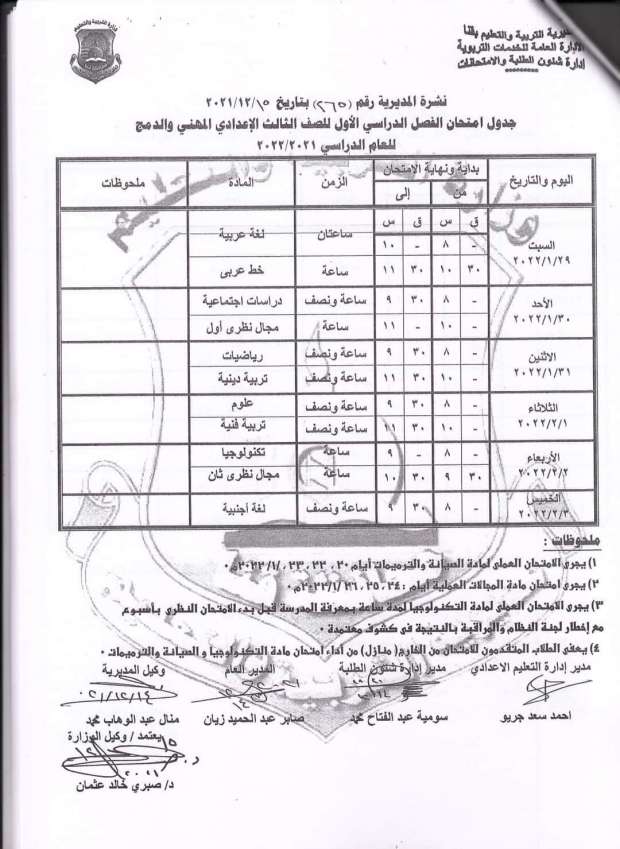 مديرية التربية والتعليم بقنا
الإدارة العامة للخدمات التربوية
إدارة شئون الطلبة والامتحانات
نشرة المديرية رقم (٢٦٥) بتاريخ ٢٠٢١/١٢/١٥
جدول امتحان الفصل الدراسي الأول للصف الثالث الإعدادي المهني والدمج
للعام الدراسي ٢٠٢٢/٢٠٢١
اليوم والتاريخ بداية ونهاية الامتحان الزمن المادة ملحوظات
من إلى
ق س ق س
السبت ٢٠٢٢/١/٢٩ - ٨ - ١٠ ساعتان لغة عربية
٣٠ ١٠ ٣٠ ١١ ساعة خط عربى
الأحد ٢٠٢٢/١/٣٠ - ٨ ٣٠ ٩ ساعة ونصف دراسات اجتماعية
- ١٠ - ١١ ساعة مجال نظرى أول
الاثنين ٢٠٢٢/١/٣١ - ٨ ٣٠ ٩ ساعة ونصف رياضيات
- ١٠ ٣٠ ١١ ساعة ونصف تربية دينية
الثلاثاء ٢٠٢٢/٢/١ - ٨ ٣٠ ٩ ساعة ونصف علوم
- ١٠ ٣٠ ١١ ساعة ونصف تربية فنية
الأربعاء ٢٠٢٢/٢/٢ - ٨ - ٩ ساعة تكنولوجيا
٣٠ ٩ ٣٠ ١٠ ساعة مجال نظرى ثان
الخميس ٢٠٢٢/٢/٣ - ٨ ٣٠ ٩ ساعة ونصف لغة أجنبية
ملحوظات :
١) يجرى الامتحان العملى لمادة الصيانة والترميمات أيام ٢٠، ٢٢، ٢٣ /٢٠٢٢/١م٠
٢) يجرى امتحان مادة المجالات العملية أيام ٢٤، ٢٥، ٢٦ /٢٠٢٢/١م٠
٣) يجرى الامتحان العملى لمادة التكنولوجيا لمدة ساعة بمعرفة المدرسة قبل بدء الامتحان النظرى بأسبوع
مع إخطار لجنة النظام والمراقبة بالنتيجة فى كشوف معتمدة ٠
٤) يعفى الطلاب المتقدمون للامتحان من الخارج( منازل) من أداء امتحان مادة التكنولوجيا و الصيانة والترميمات ٠
مدير إدارة التعليم الاعدادي مدير إدارة شئون الطلبة المدير العام وكيل المديرية
احمد سعد جريو سومية عبد الفتاح محمد صابر عبد الحميد زيان منال عبد الوهاب محمد
يعتمد / وكيل الوزارة
د/ صبري خالد عثمان